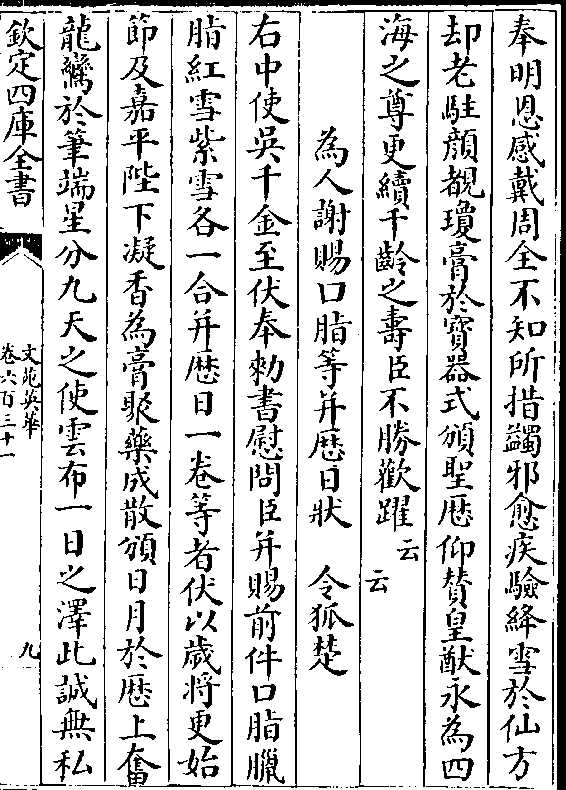 奉明恩感戴周全不知所措蠲邪愈疾驗絳雪於仙方
却老駐顔覩瓊膏於寳器式頒聖厯仰賛皇猷永為四
海之尊更續千齡之夀臣不勝歡躍云云
為人謝賜口脂等并厯日狀　令狐楚
右中使吳千金至伏奉勑書慰問臣并賜前件口脂臘
脂紅雪紫雪各一合并厯日一卷等者伏以歳將更始
節及嘉平陛下凝香為膏聚藥成散頒日月於厯上奮
龍鸞於筆端星分九天之使雲布一日之澤此誠無私
欽定四庫全書
文苑英華
卷六百三十一
九